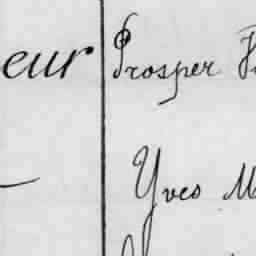 eur Prosper
Yves